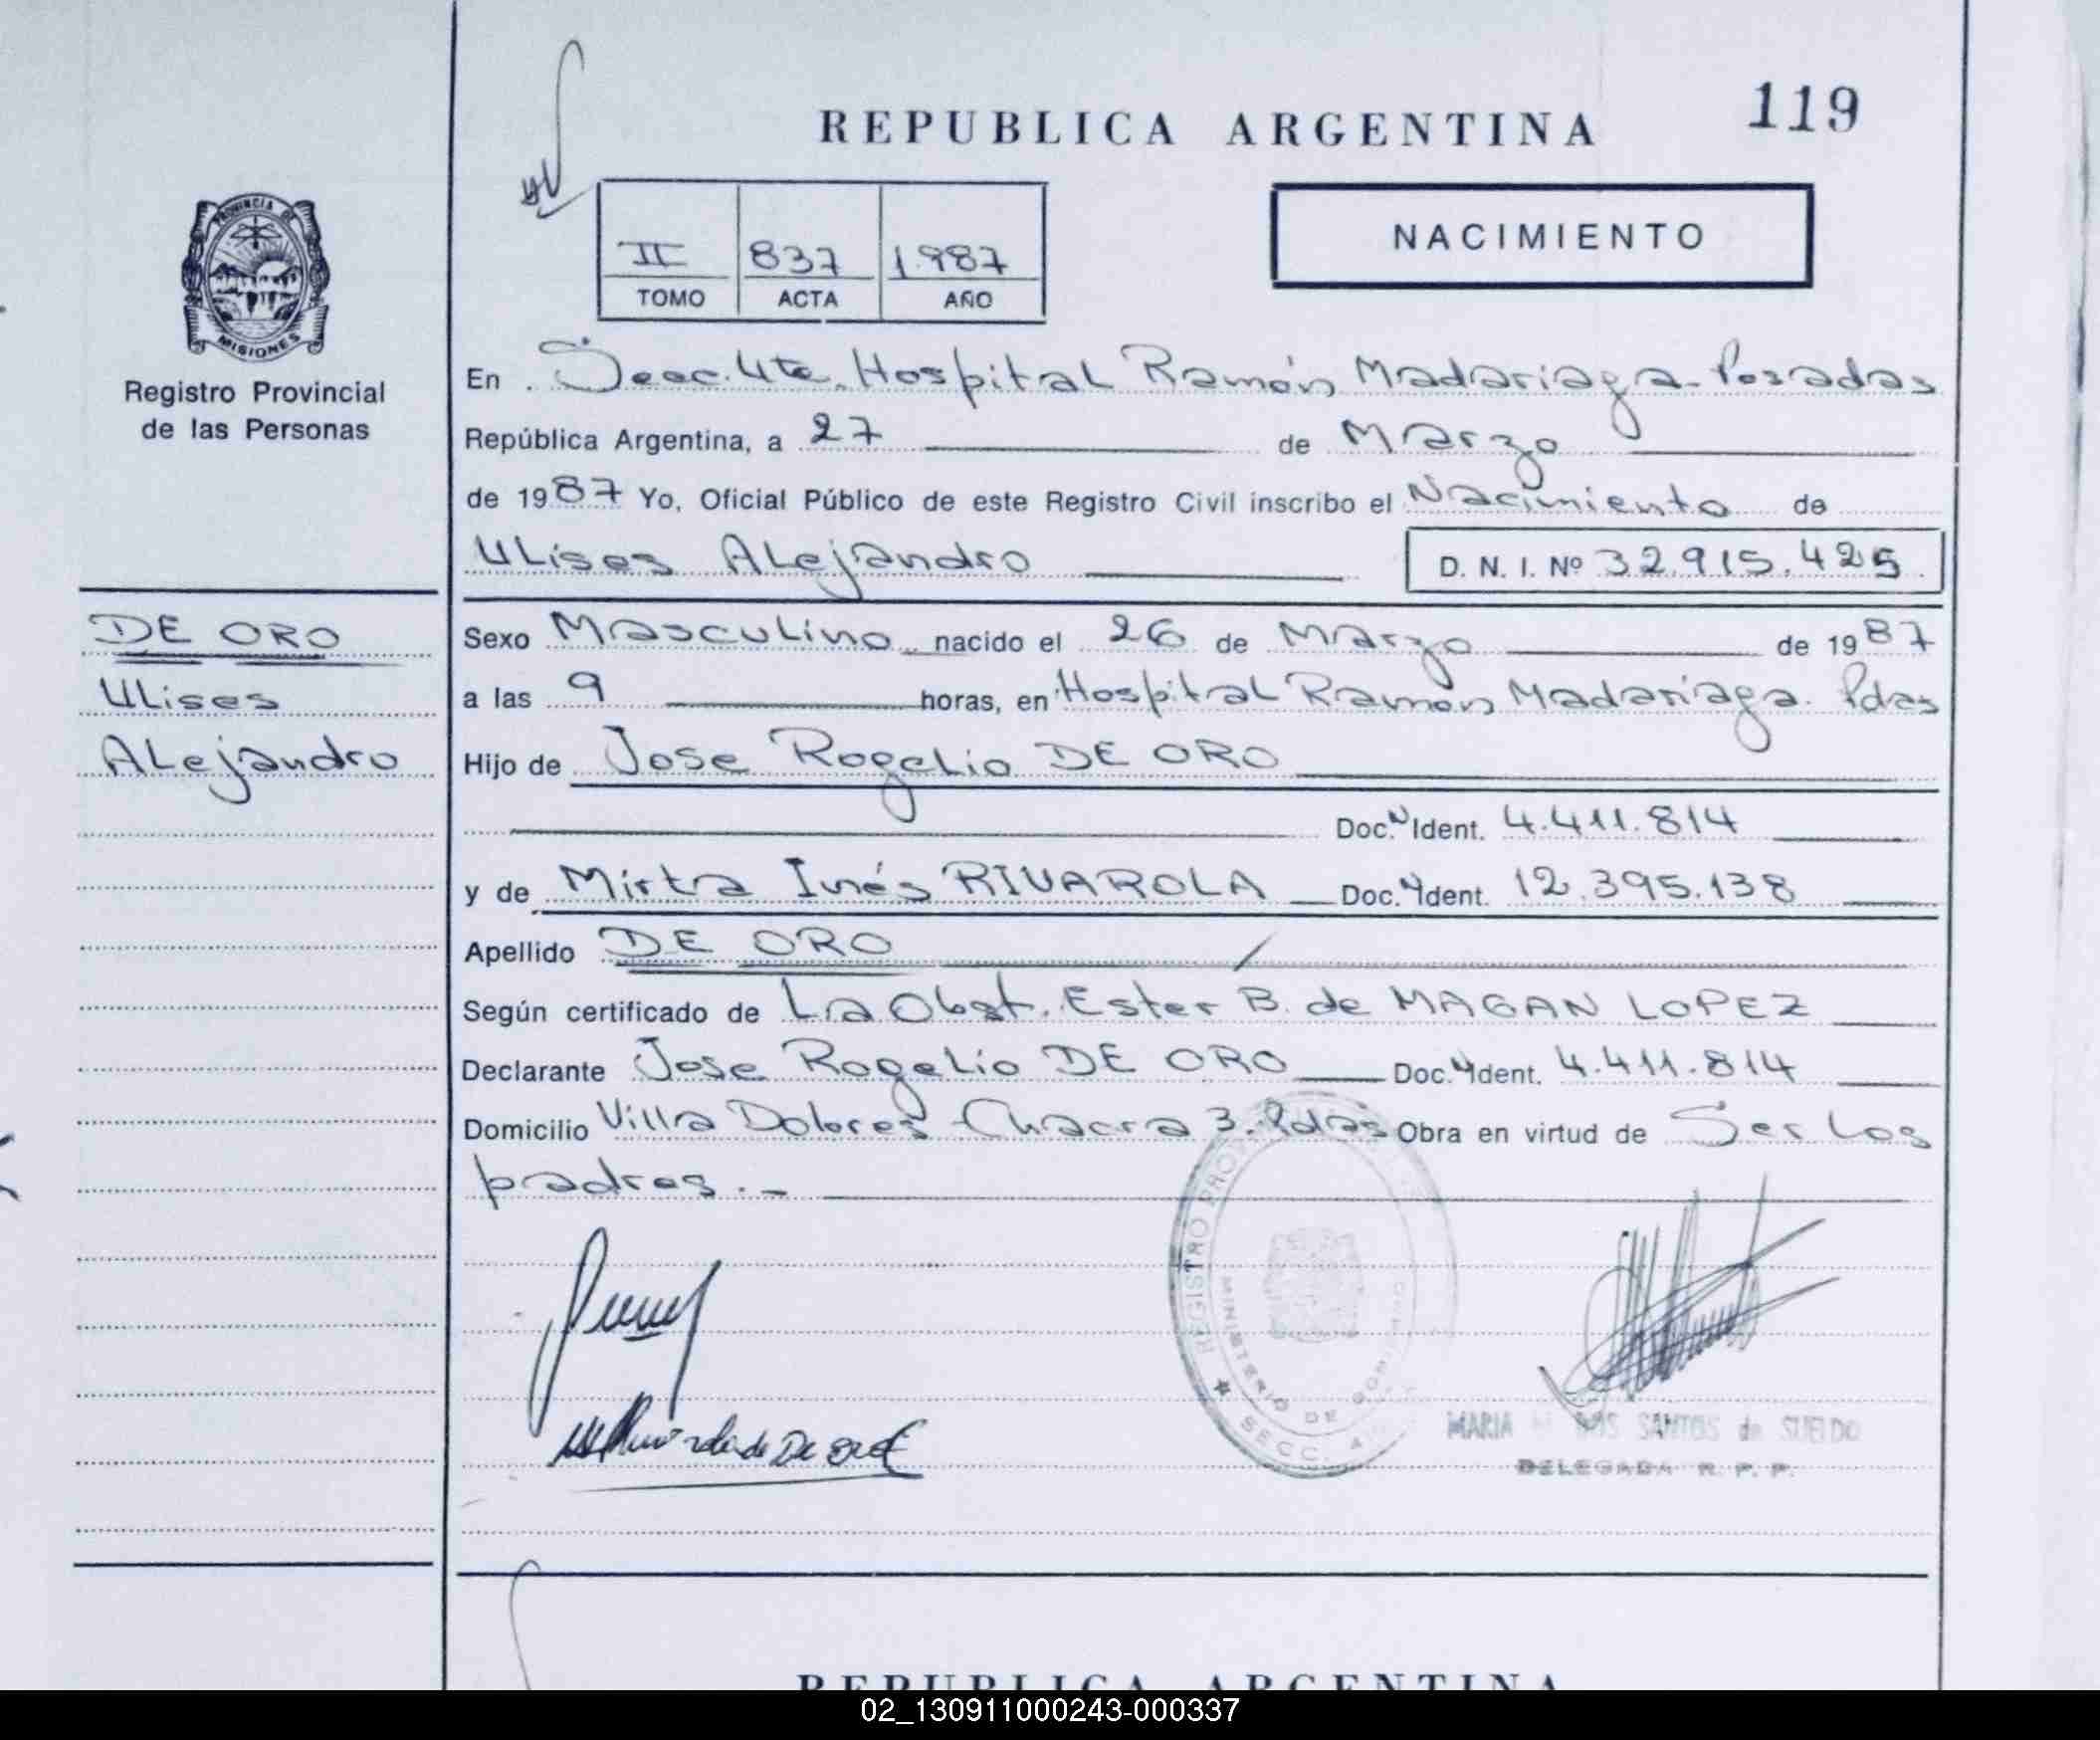 119
REPUBLICA ARGENTINA
II 837 1.987
TOMO ACTA AÑO
NACIMIENTO
PROVINCIA DE
MISIONES
Registro Provincial
de las Personas
En Secc. 4ta. Hospital Ramón Madariaga - Posadas
República Argentina, a 27 de Marzo
de 1987 Yo, Oficial Público de este Registro Civil inscribo el Nacimiento de
Ulises Alejandro D. N. I. Nº 32.915.425
DE ORO
Ulises
Alejandro
Sexo Masculino nacido el 26 de Marzo de 1987
a las 9 horas, en Hospital Ramón Madariaga. Pdas
Hijo de Jose Rogelio DE ORO
Doc. Ident. 4.411.814
y de Mirta Inés RIVAROLA Doc. Ident. 12.395.138
Apellido DE ORO
Según certificado de La Obst. Ester B. de MAGAN LOPEZ
Declarante Jose Rogelio DE ORO Doc. Ident. 4.411.814
Domicilio Villa Dolores - Chacra 3. Pdas Obra en virtud de Ser los
padres.-
REGISTRO
MINISTERIO DE
SECC. 4
de De Oro
MARIA DOS SANTOS de SUELDO
DELEGADA R. P. P.
REPUBLICA ARGENTINA
02_130911000243-000337